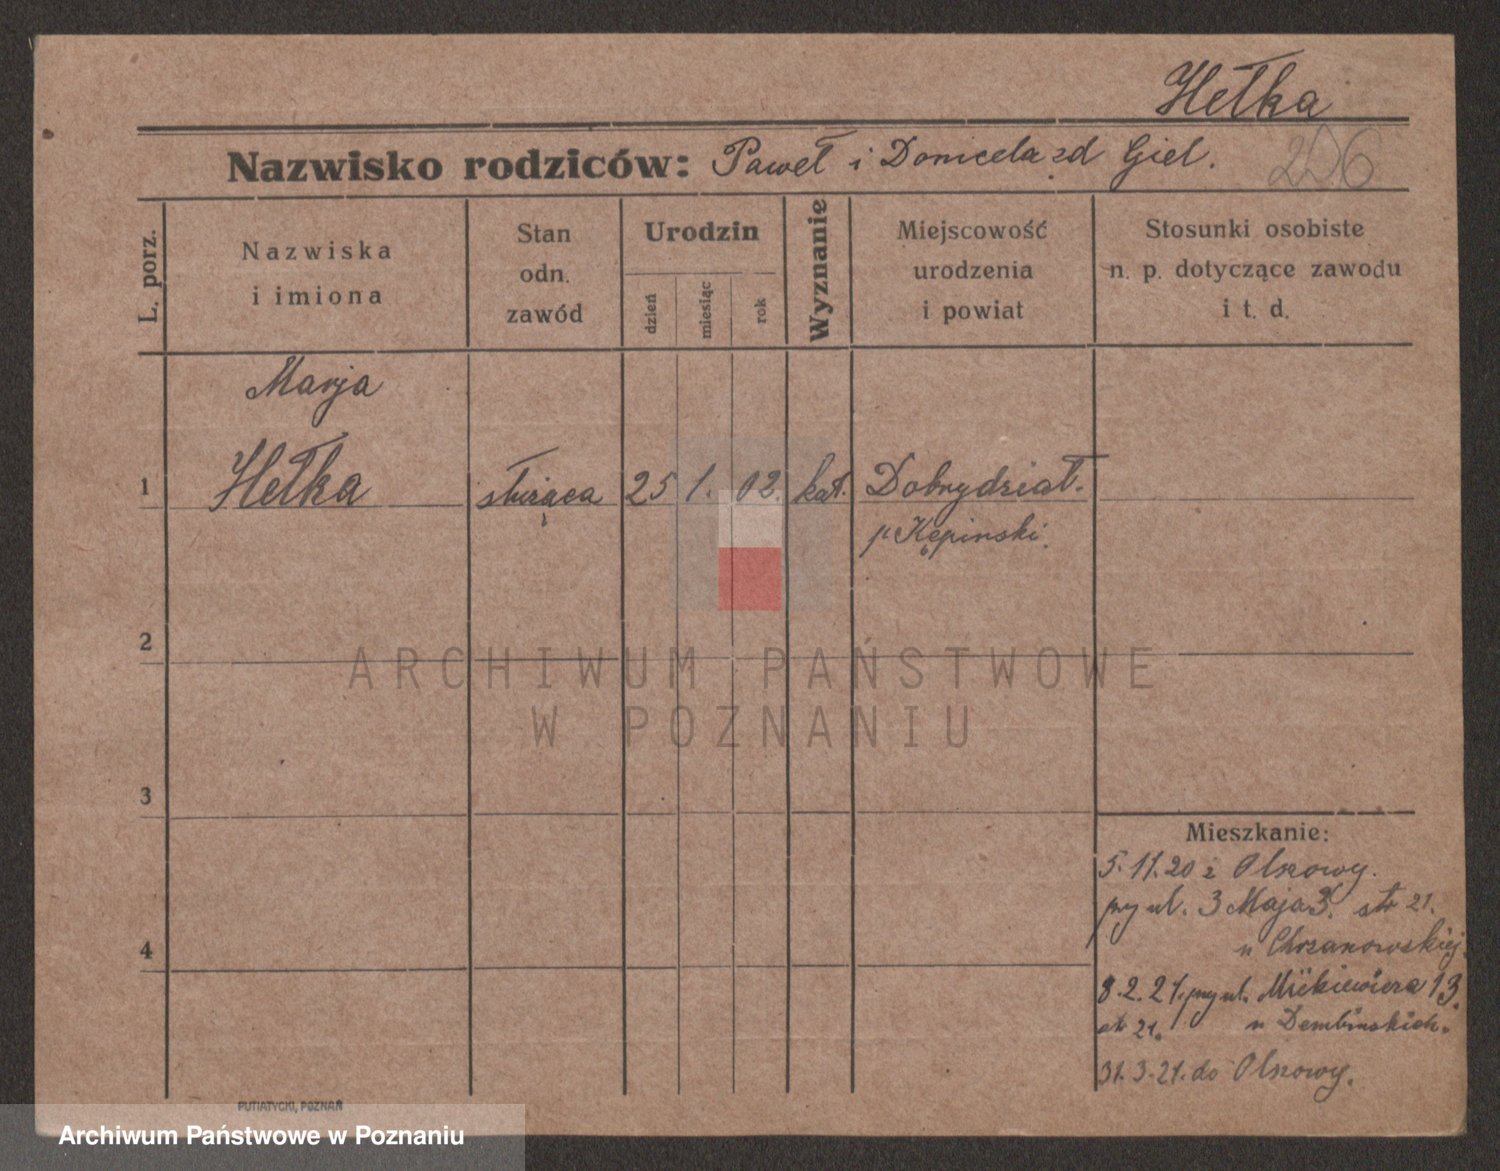 Hełka
Nazwisko rodziców: Paweł i Donicela zd Giel.
206
L. porz.
Nazwiska
i imiona
Stan
odn.
zawód
Urodzin
dzień
miesiąc
rok
Wyznanie
Miejscowość
urodzenia
i powiat
Stosunki osobiste
n. p. dotyczące zawodu
i t. d.
Marja
1 Hełka służąca 25 1. 02. kat. Dobrydział.
p Kępinski.
2
ARCHIWUM PAŃSTWOWE
W POZNANIU
3
Mieszkanie:
5.11.20 z Olszowy.
przy ul. 3 Maja 3. str 21.
u Chrzanowskiej.
4
8.2.21. przy ul. Mickiewicza 13.
str 21. u Dembinskich.
31.3.21. do Olszowy.
PUTIATYCKI, POZNAŃ
Archiwum Państwowe w Poznaniu